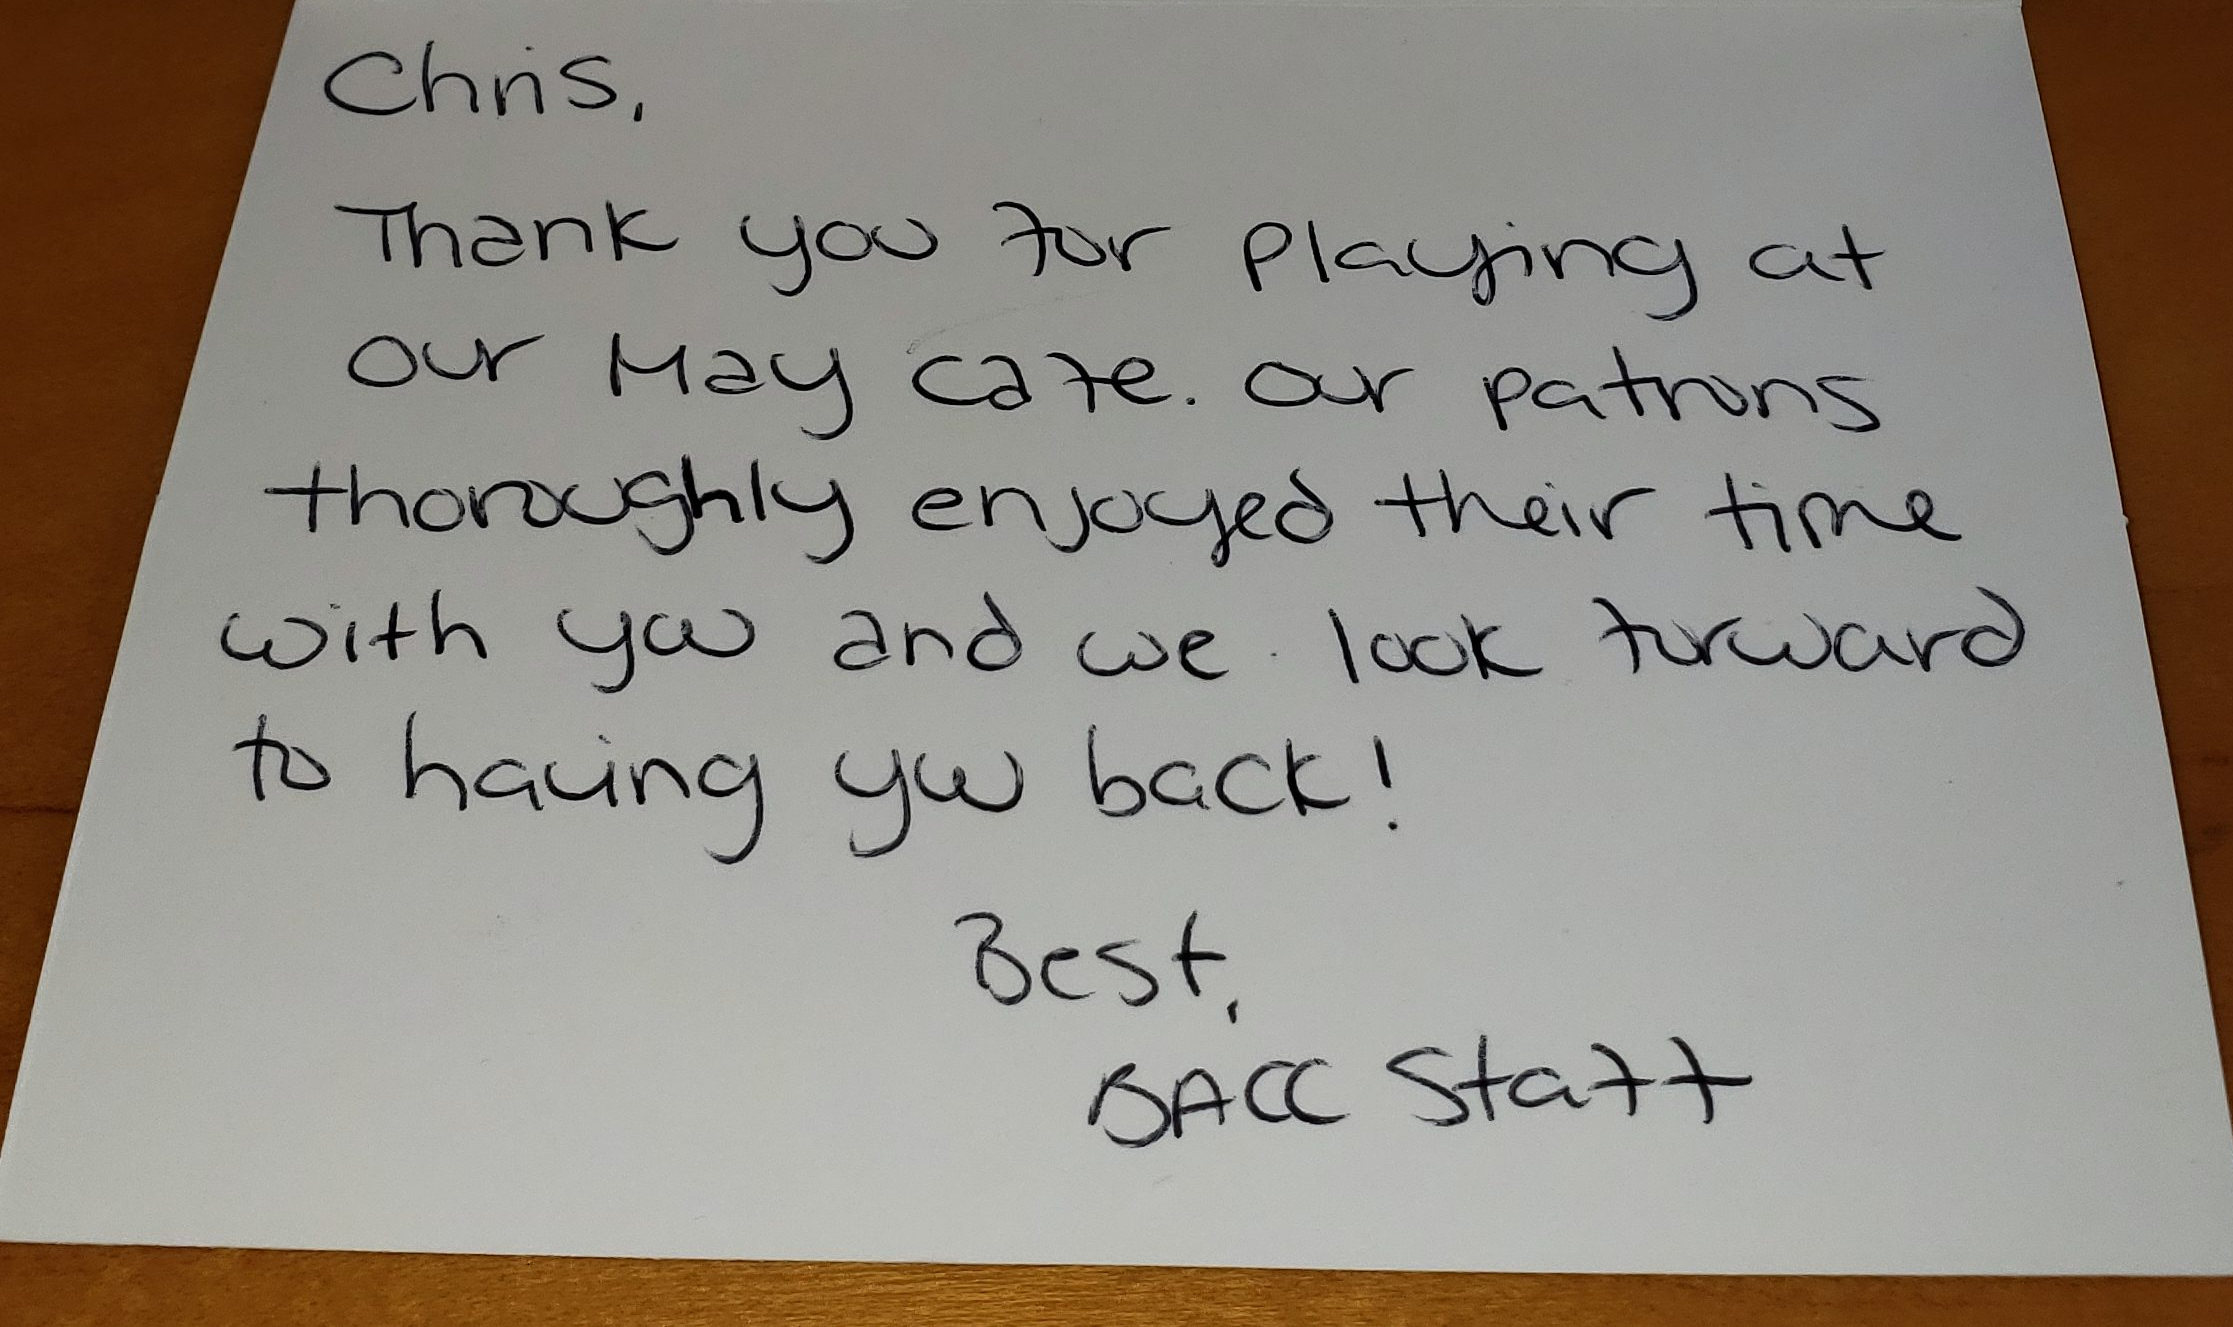 Chris,
Thank you for playing at
our May cafe. Our patrons
thoroughly enjoyed their time
with you and we look forward
to having you back!
Best,
BACC Staff